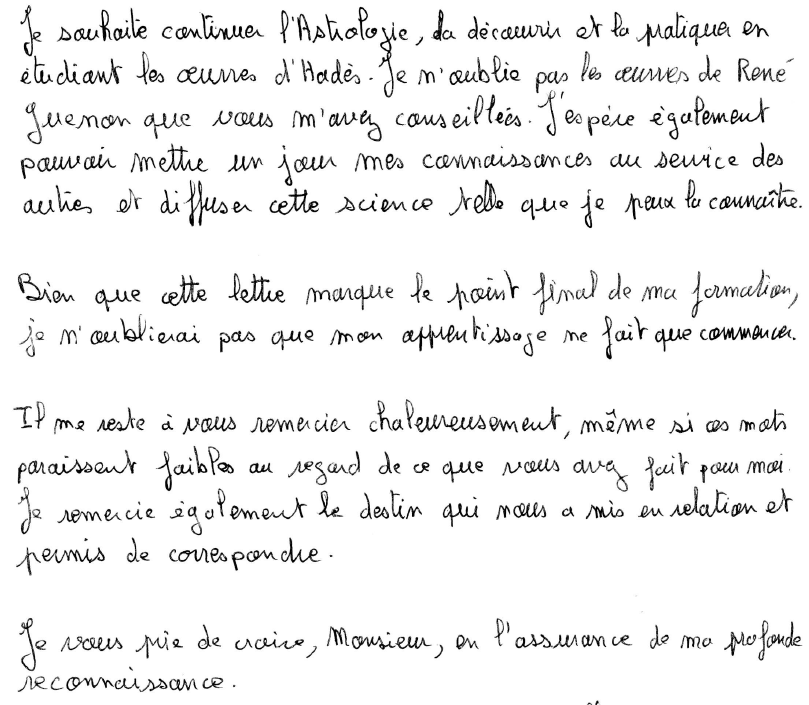 Je souhaite continuer l'Astrologie, la découvrir et la pratiquer en
étudiant les œuvres d'Hadès. Je n'oublie pas les œuvres de René
Guenon que vous m'avez conseillées. J'espère également
pouvoir mettre un jour mes connaissances au service des
autres et diffuser cette science telle que je peux la connaître.
Bien que cette lettre marque le point final de ma formation,
je n'oublierai pas que mon apprentissage ne fait que commencer.
Il me reste à vous remercier chaleureusement, même si ces mots
paraissent faibles au regard de ce que vous avez fait pour moi.
Je remercie également le destin qui nous a mis en relation et
permis de correspondre.
Je vous prie de croire, Monsieur, en l'assurance de ma profonde
reconnaissance.